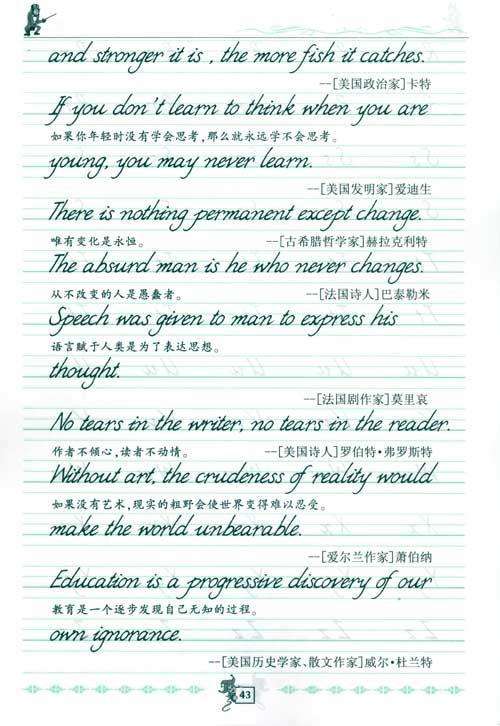 and stronger it is , the more fish it catches.
--[美国政治家]卡特
If you don't learn to think when you are
如果你年轻时没有学会思考,那么就永远学不会思考。
young, you may never learn.
--[美国发明家]爱迪生
There is nothing permanent except change.
唯有变化是永恒。 --[古希腊哲学家]赫拉克利特
The absurd man is he who never changes.
从不改变的人是愚蠢者。 --[法国诗人]巴泰勒米
Speech was given to man to express his
语言赋于人类是为了表达思想。
thought.
--[法国剧作家]莫里哀
No tears in the writer, no tears in the reader.
作者不倾心,读者不动情。 --[美国诗人]罗伯特·弗罗斯特
Without art, the crudeness of reality would
如果没有艺术,现实的粗野会使世界变得难以忍受。
make the world unbearable.
--[爱尔兰作家]萧伯纳
Education is a progressive discovery of our
教育是一个逐步发现自己无知的过程。
own ignorance.
--[美国历史学家、散文作家]威尔·杜兰特
43